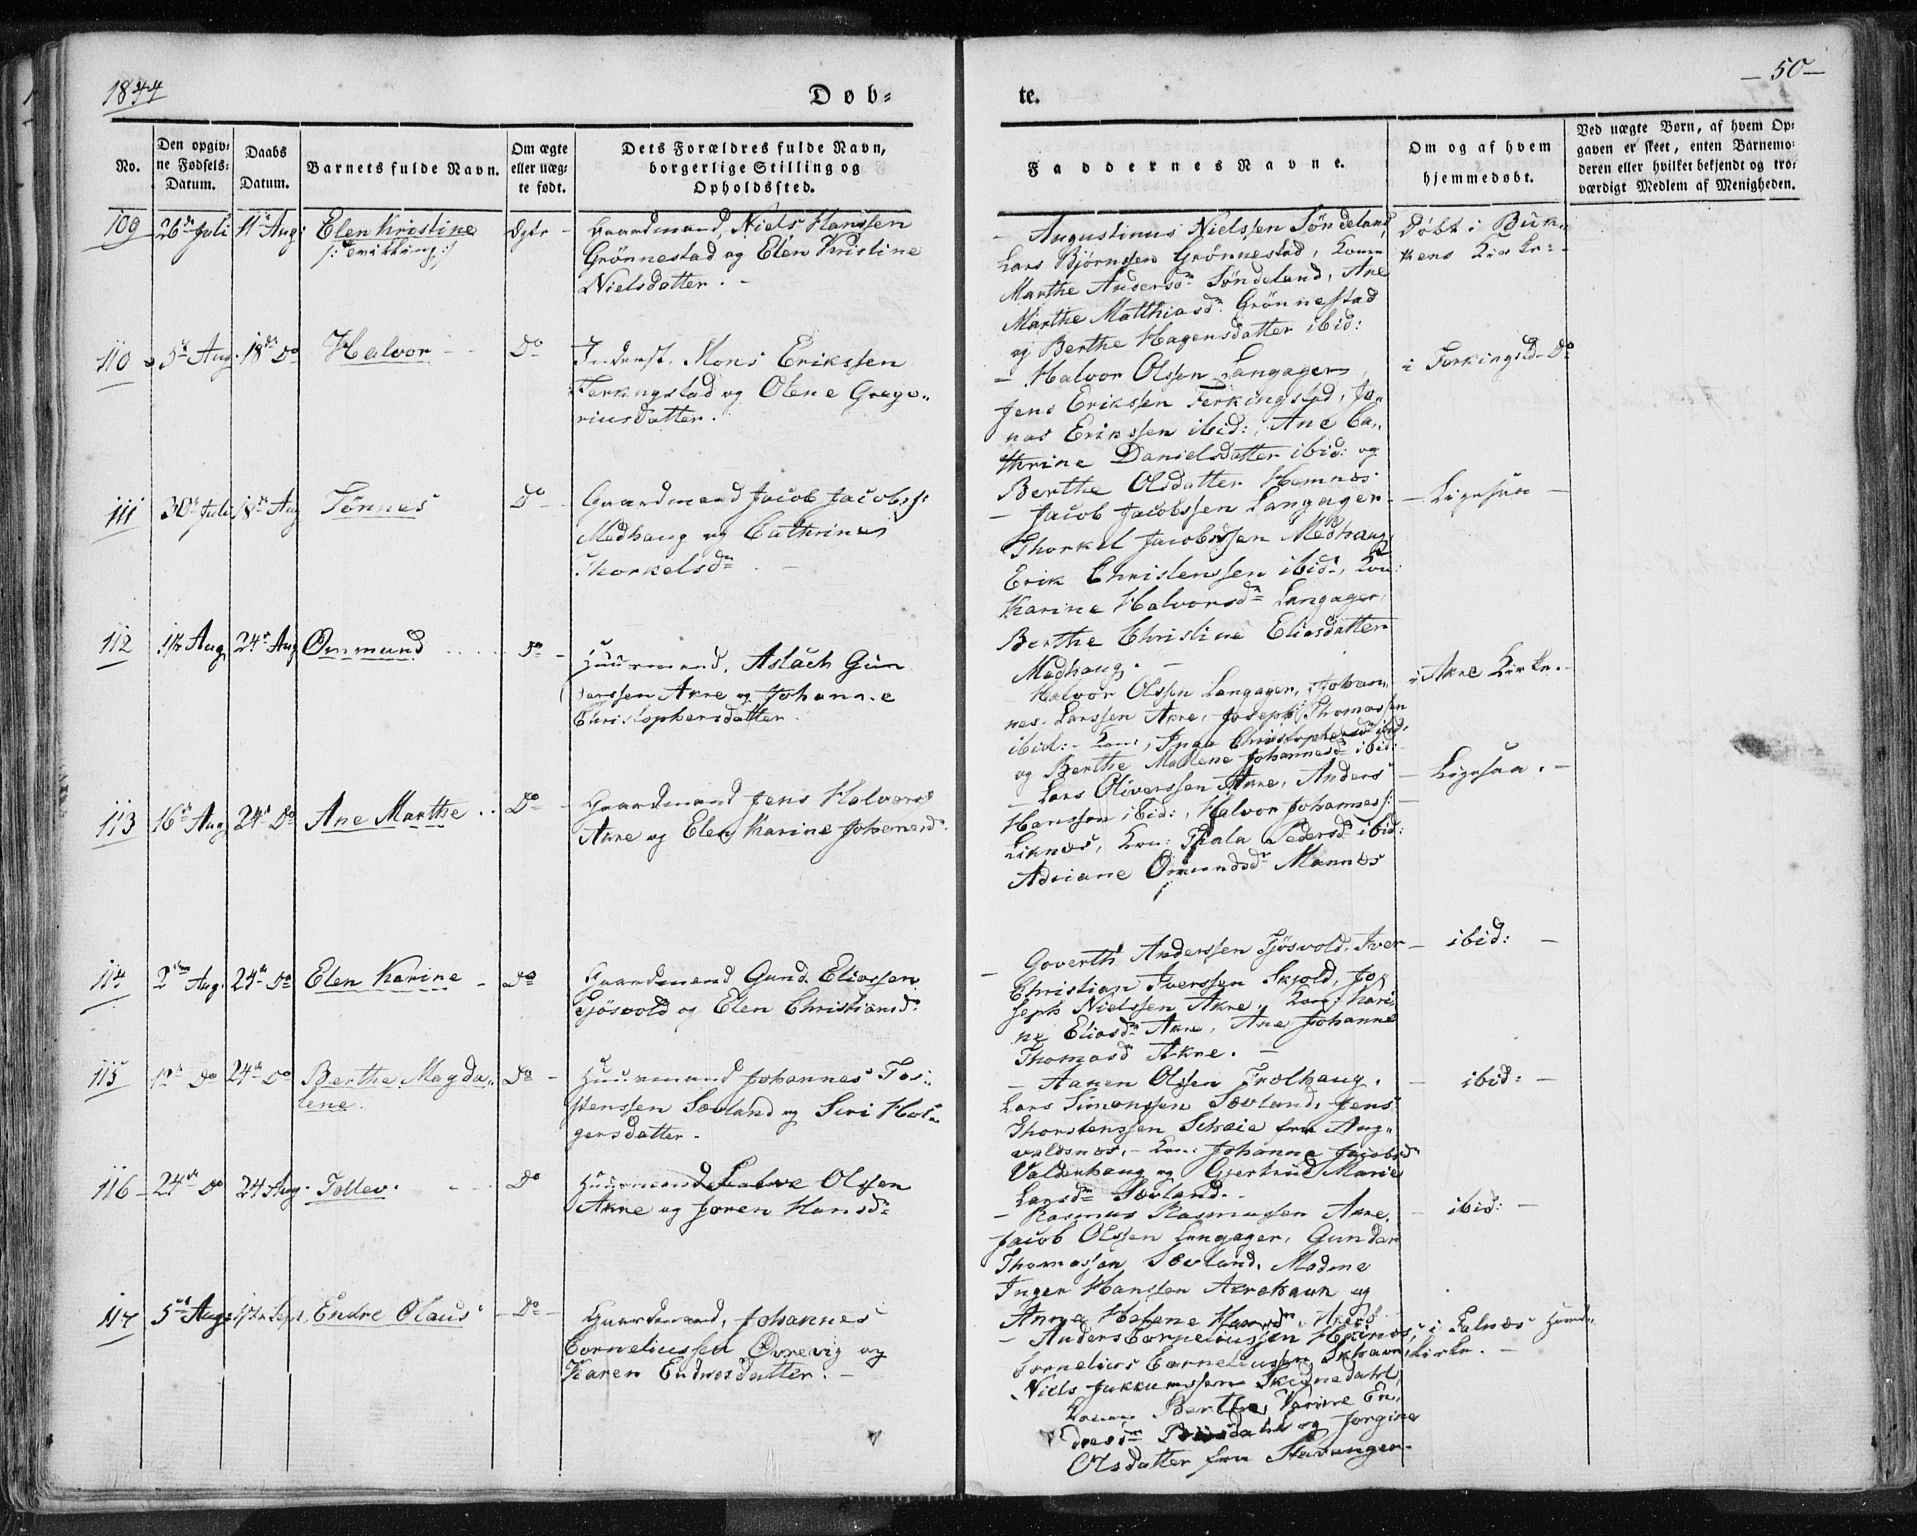 1844
Döb-
te.
-50-
No.
Den opgiv-
ne Fødsels-
Datum.
Daabs
Datum.
Barnets fulde Navn.
Om ægte
eller uæg-
te født.
Dets Forældres fulde Navn,
borgerlige Stilling og
Opholdssted.
Faddernes Navne.
Om og af hvem
hjemmedøbt.
Ved uægte Børn, af hvem Op-
gaven er skeet, enten Barnemo-
deren eller hvilket bekjendt og tro-
værdigt Medlem af Menigheden.
109 26de Juli 11te Aug: Elen Kristine
/: Tvilling :/
Ægte -
Gaardmand Niels Hanssen
Grönnestad og Elen Kristine
Nielsdatter. -
- Augustinus Nielssen Söndeland,
Lars Björnssen Grönnestad, Kone
Marthe Andersdr Söndeland, Ane
Marthe Matthiasdr Grönnestad
og Berthe Hagensdatter ibid:
Döbt i Buk-
kens Kirke -
110 5te Aug. 18de Do Halvor Do
Inderst. Mons Erikssen
Ferkingstad og Olene Grego-
riusdatter.
- Halvor Olssen Langager,
Jens Eriksen Ferkingstad, Jo-
nas Erikssen ibid:, Ane Ca-
thrine Danielsdatter ibid: og
Berthe Olsdatter Hemnæs
i Ferkingsd. Do
111 30te Juli 18de Aug Tönnes Do
Gaardmand Jacob Jacobs:
Medhaug og Cathrine
Thorkelsdr -
- Jacob Jacobssen Langager -
Thorkel Jacobssen Medhaug
Erik Christenssen ibid:, Kon:
Karine Halvorsdr Langager,
Berthe Christine Eliasdatter
Medhaug. -
- Ligesaa -
112 1ste Aug 24de Aug Ommund Do
Huusmand, Aslach Gun
derssen Akre og Johanne
Christophersdatter.
Halvor Olssen Langager, Johan-
nes Larssen Akre, Joseph Thomassen
ibid: - Kone, Inga Christophersdr ibid:
og Berthe Malene Johannesdr ibid:
i Akre Kirke. -
113 16de Aug 24de Do Ane Marthe Do
Gaardmand Jens Halvors:
Akre og Elen Karine Johanesdr.
- Lars Oliverssen Akre, Anders
Hanssen ibid:, Halvor Johannes:
Liknæs, Kon: Thala Pedersd ibid:
Adriane Omundsdr Mannes
- Ligesaa. -
114 2den Aug. 24de Do Elen Karine - Do
Gaardmand Gund. Eliassen
Tjösvold og Elen Christiansd.
- Goverth Anderssen Tjösvold, Iver
Christian Iverssen Skjold, Jo-
seph Nielssen Akre, Kon: Kari-
ne Eliasdr Akre, Ane Johanne
Thomasdr Akre. -
- ibid: -
115 12te Do 24de Do Berthe Magda-
lene.
Do -
Huusmand Johannes Tor-
stenssen Sævland og Siri Hol-
gersdatter.
- Aanen Olssen Trolhaug,
Lars Simonssen Sævland, Jens
Thorstenssen Scheie fra Aug-
valdsnæs. - Kon: Johanne Jacobsd
Valdenhaug og Gjertrud Marie
Larsdr Sævland. -
- ibid: -
116 24de Do 24 Aug. Tollev. Do
Huusmand Salve Olssen
Akre og Joren Hansdr
- Rasmus Rasmussen Akre,
Jacob Olssen Langager, Gunder
Thomassen Sævland, Madme
Inger Hanssen Akrehavn og
Anne Helene Hansdr, Akreh
- ibid: -
117 5te Aug: 1ste Sept. Endre Olaus - Do -
Gaardmand, Johannes
Corneliussen Øvrevig og
Karen Endresdatter. -
- Anders Corneliussen Hemnæs,
Cornelius Corneliussen
Niels Jukkumssen
Kone Berthe Karine En-
dresdr og Jorgine
Olsdatter fra Stavanger
i Falnæs Hoved-
kirke. -